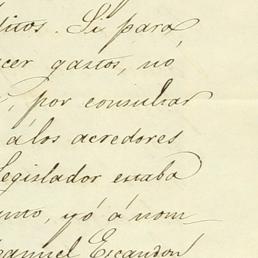 ditos. Si para
cer gastos, nó
, por consultar
á los acredores
legislador estaba
unto, yó á nom-
anuel Escandón